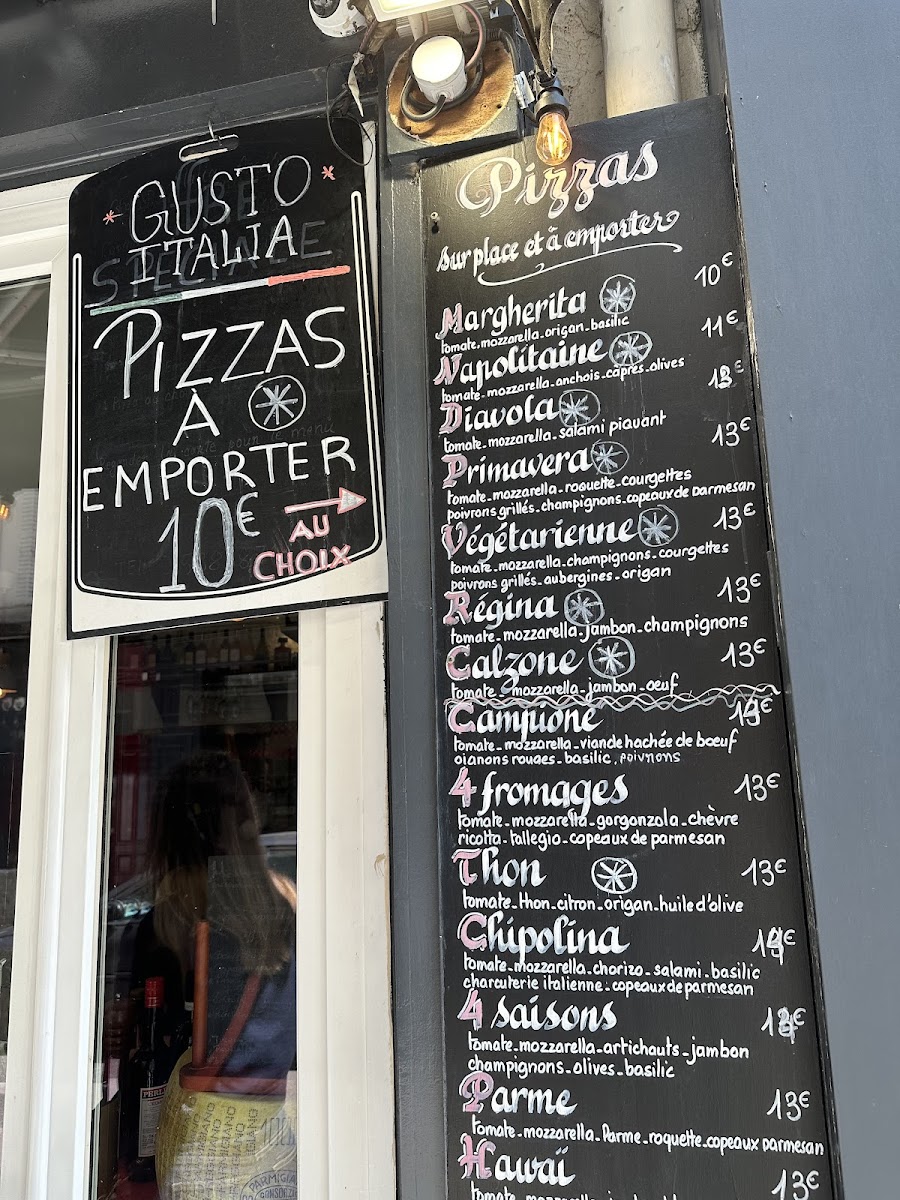 GUSTO
ITALIA
PIZZAS
À
EMPORTER
10€
AU
CHOIX
Pizzas
sur place et à emporter
Margherita 10€
tomate.mozzarella.origan.basilic
Napolitaine 11€
tomate-mozzarella-anchois-capres-olives
Diavola €
tomate-mozzarella-salami piquant
Primavera 13€
tomate-mozzarella-roquette-courgettes
poivrons grillés-champignons-copeaux de Parmesan
Végétarienne 13€
tomate-mozzarella-champignons-courgettes
poivrons grillés-aubergines-origan
Régina 13€
tomate-mozzarella-jambon-champignons
Calzone 13€
tomate-mozzarella-jambon-oeuf
Campione €
tomate-mozzarella-viande hachée de bœuf
oignons rouges-basilic, poivrons
4 fromages 13€
tomate-mozzarella-gorgonzola-chèvre
ricotta-tallegio-copeaux de parmesan
Thon 13€
tomate-thon-citron-origan-huile d'olive
Chipolina €
tomate-mozzarella-chorizo-salami-basilic
charcuterie italienne-copeaux de parmesan
4 saisons €
tomate.mozzarella-artichauts-jambon
champignons-olives-basilic
Parme 13€
tomate-mozzarella-Parme-roquette.copeaux parmesan
Hawaï 13€